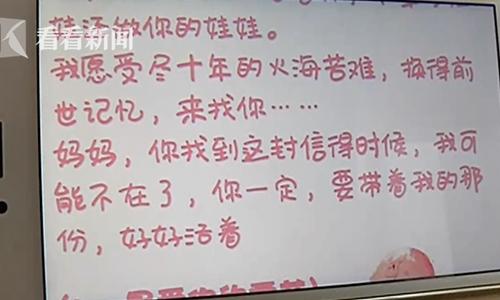 看看新闻
娃还做你的娃娃。
我愿受尽十年的火海苦难，换得前
世记忆，来找你……
妈妈，你找到这封信得时候，我可
能不在了，你一定，要带着我的那
份，好好活着